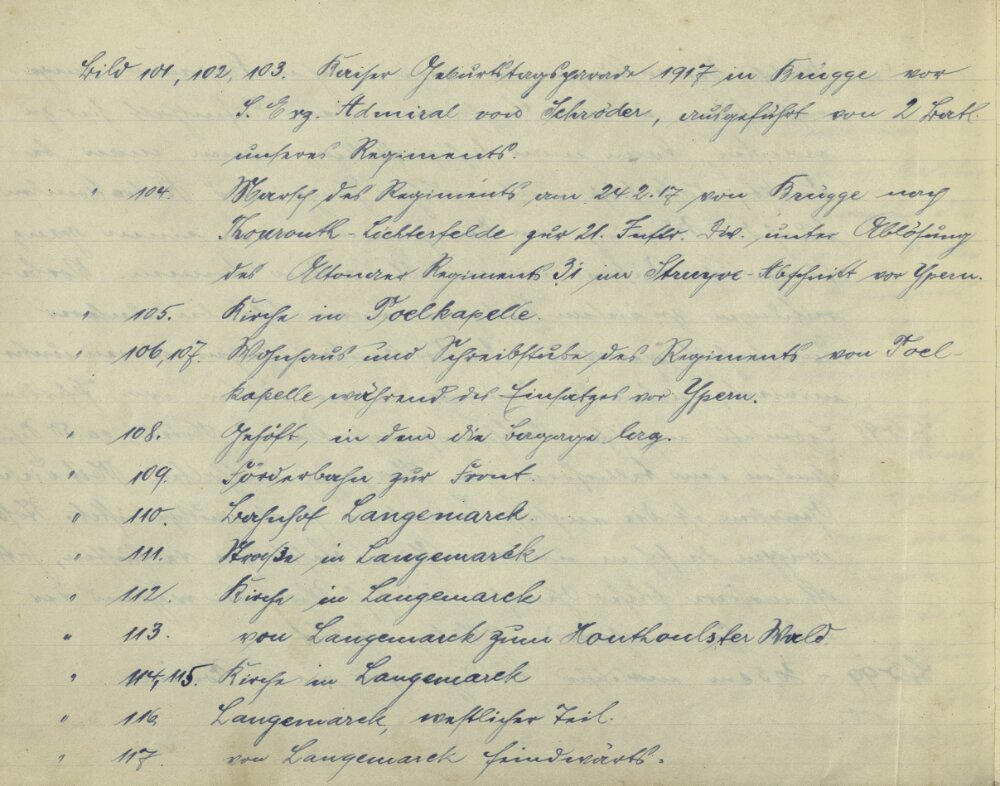 Bild 101, 102, 103. Kaiser Geburtstagsparade 1917 in Brügge vor
S. Exz. Admiral von Schröder, ausgeführt von 2 Batl.
unseres Regiments.
" 104. Marsch des Regiments am 24.2.17 von Brügge nach
-Lichterfelde zur 21. Inftr. Div. unter Ablösung
des Altonaer Regiments 31 im Struyve-Abschnitt vor Ypern.
" 105. Kirche in Poelkapelle.
" 106, 107. Wohnhaus und Schreibstube des Regiments von Poel-
kapelle während des Einsatzes vor Ypern.
" 108. Gehöft, in dem die Bagage lag.
" 109. Förderbahn zur Front.
" 110. Bahnhof Langemarck.
" 111. Straße in Langemarck
" 112. Kirche in Langemarck
" 113. von Langemarck zum Houthoulster Wald
" 114, 115. Kirche in Langemarck
" 116. Langemarck, westlicher Teil.
" 117. von Langemarck feindwärts.